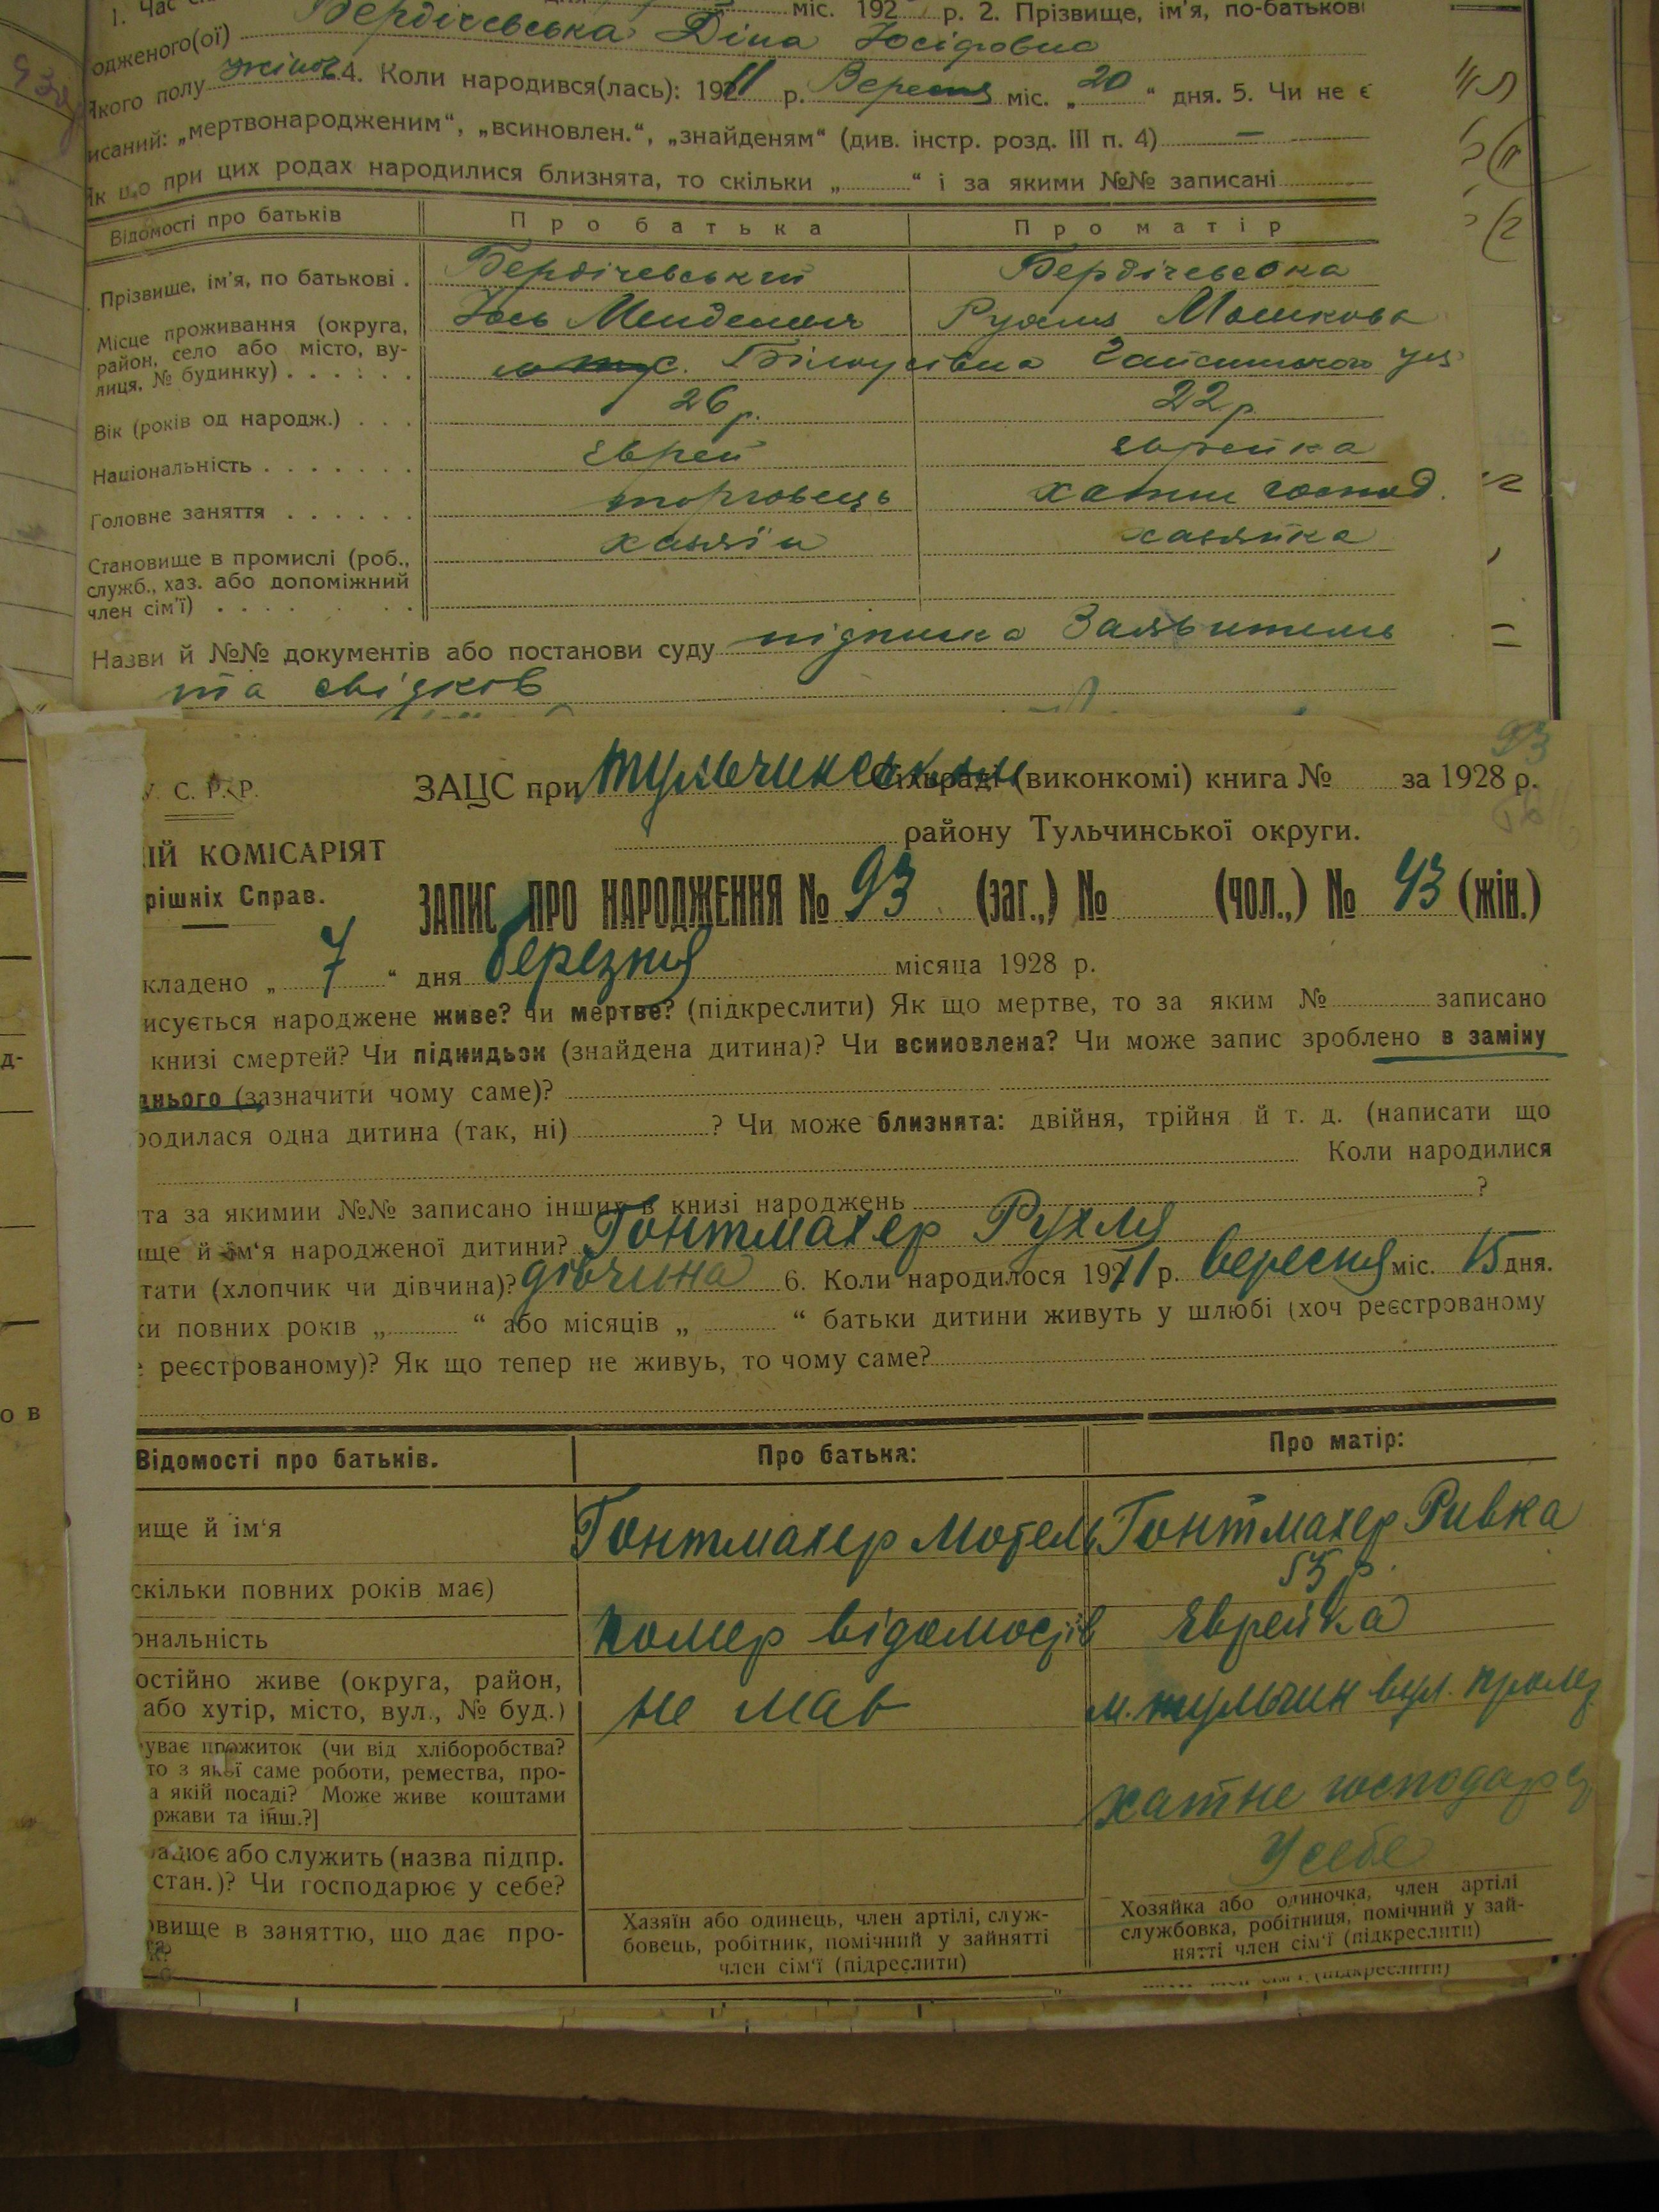 1. Час
міс. 192 р. 2. Прізвище, ім'я, по-батькові
одженого(ої) Бердічевська Діна Йосіфовна
якого полу жіноч. 4. Коли народився(лась): 1911 р. Вересня міс. „20“ дня. 5. Чи не є
исаний: „мертвонародженим“, „всиновлен.“, „знайденям“ (див. інстр. розд. III п. 4) —
Як що при цих родах народилися близнята, то скільки „ “ і за якими №№ записані
Відомості про батьків Про батька Про матір
Прізвище, ім'я, по батькові . Бердічевський Бердічевська
Йось Менделевич Рухля Мошкова
Місце проживання (округа,
район, село або місто, ву-
лиця, № будинку) . . . . . . с. Білоусівка Гайсинського
Вік (років од народж.) . . . 26 р. 22 р
Національність . . . . . . . Єврей єврейка
Головне заняття . . . . . . торговець хатнє господ.
Становище в промислі (роб.,
служб., хаз. або допоміжний
член сім'ї) . . . . . . . . хазяїн хазяйка
Назви й №№ документів або постанови суду підписка Заявитель
та свідків
93
У. С. Р. Р.
ЗАЦС при Тульчинськом Сільраді (виконкомі) книга № за 1928 р.
району Тульчинської округи.
ІЙ КОМІСАРІЯТ
рішніх Справ.
ЗАПИС ПРО НАРОДЖЕННЯ № 93 (заг.,) № (чол.,) № 43 (жін.)
кладено „ 7 “ дня березня місяца 1928 р.
исується народжене живе? чи мертве? (підкреслити) Як що мертве, то за яким № записано
книзі смертей? Чи підкидьок (знайдена дитина)? Чи всиновлена? Чи може запис зроблено в заміну
днього (зазначити чому саме)?
родилася одна дитина (так, ні) ? Чи може близнята: двійня, трійня й т. д. (написати що
Коли народилися
та за якимии №№ записано інших в книзі народжень ?
ище й їм'я народженої дитини? Гонтмахер Рухля
тати (хлопчик чи дівчина)? дівчина 6. Коли народилося 1911 р. вересня міс. 15 дня.
ки повних років „ “ або місяців „ “ батьки дитини живуть у шлюбі (хоч реєстрованому
реєстрованому)? Як що тепер не живуь, то чому саме?
Відомості про батьків. Про батька: Про матір:
ище й їм'я Гонтмахер Мотель Гонтмахер Ривка
скільки повних років має) 55 р.
ональність помер відомостів Єврейка
остійно живе (округа, район,
або хутір, місто, вул., № буд.) не мав м. тульчин вул. пролет
ує прожиток (чи від хліборобства?
то з якої саме роботи, ремества, про-
а якій посаді? Може живе коштами
ржави та інш.?] хатне господар
ацює або служить (назва підпр.
стан.)? Чи господарює у себе? У себе
овище в заняттю, що дає про-
Хазяїн або одинець, член артілі, служ-
бовець, робітник, помічний у зайнятті
член сім'ї (підреслити)
Хозяйка або одиночка, член артілі
службовка, робітниця, помічний у зай-
нятті член сім'ї (підкреслити)